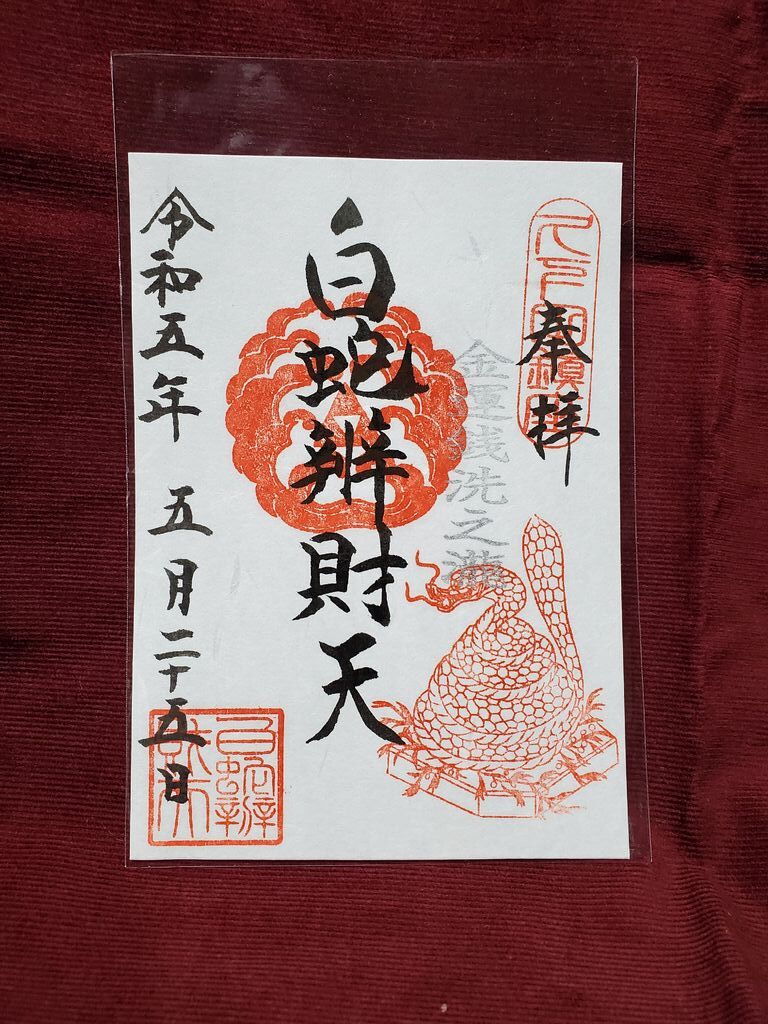 奉拝
金運銭洗之瀧
白蛇辨財天
令和五年 五月二十五日
白蛇辨
財天